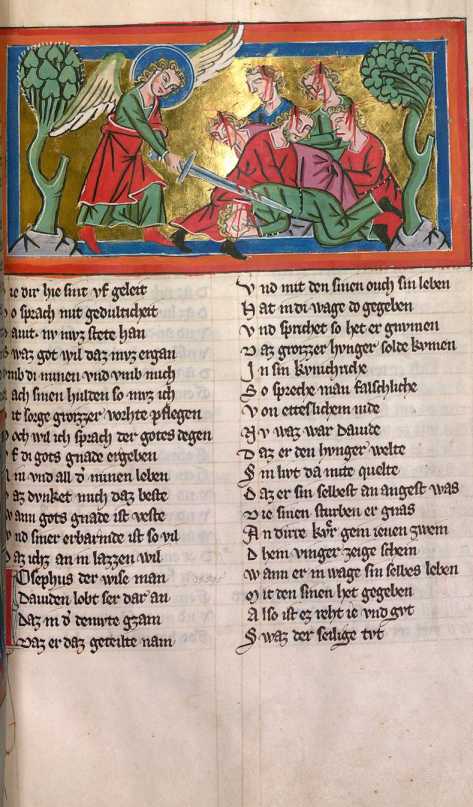 ie dir hie sint vf geleit
o sprach mit gedulticheit
auit. nv mvz stete han
waz got wil daz mvz ergan
vmb di minen vnd vmb mich
ach sinen hulden so mvz ich
it sorge groizzer vorhte pflegen
och wil ich sprach der gotes degen
f di gots gnade ergeben
in vnd all d' minen leben
az dvnket mich daz beste
wann gots gnade ist veste
vnd siner erbarmde ist so vil
az ichz an in lazzen wil
Josephus der wise man
Dauiden lobt ser dar an
Daz in d' demvte gzam
Daz er daz geteilte nam
Vnd mit den sinen ouch sin leben
Hat in di wage do gegeben
Vnd sprichet so het er gwnnen
Daz groizzer hvnger solde kvmen
In sin kvnichriche
So spreche man falschliche
Von etteslichem nide
Nv waz war Dauide
Daz er den hvnger welte
Sin livt da mite quelte
Daz er sin selbest an angest was
Die sinen sturben er gnas
An dirre kvr gem ienen zwein
D hein vinger zeige schein
Wann er in wage sin selbes leben
Mit den sinen het gegeben
Also ist ez reht ie vnd gvt
Swaz der selige tvt